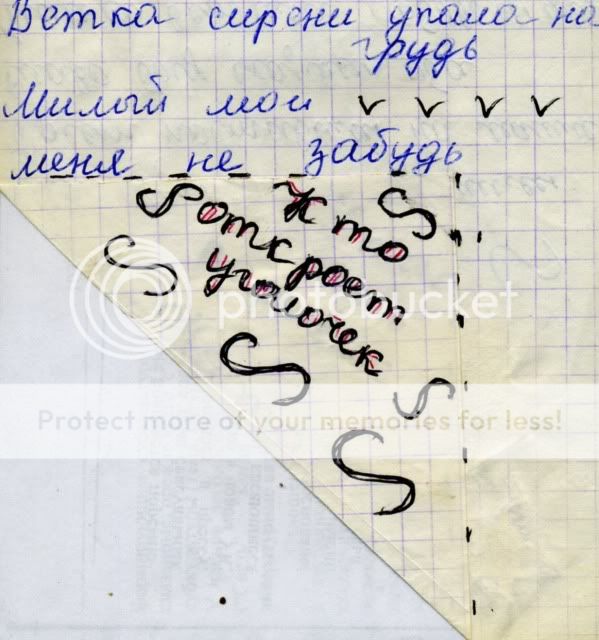 Ветка сирени упала на
грудь
Милый мой v v v v
меня не забудь
Кто
откроет
уголочек
photobucket
Protect more of your memories for less!